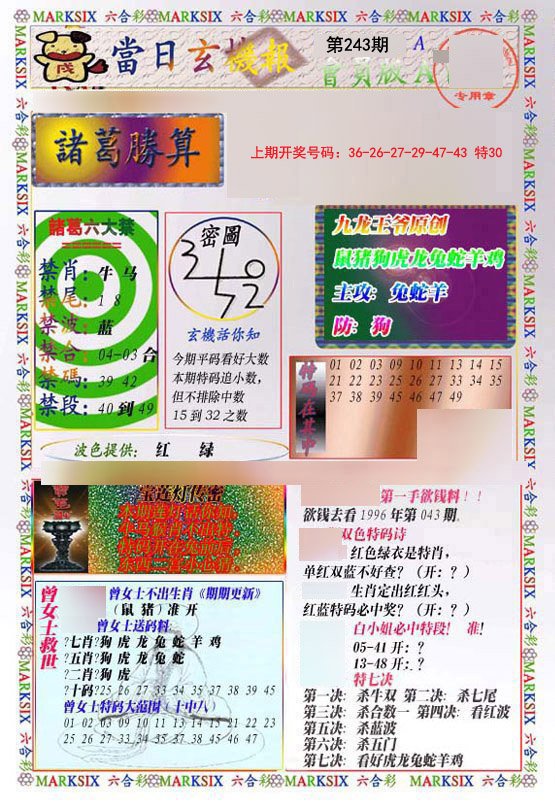 MARKSIX 六合彩 MARKSIX 六合彩 MARKSIX 六合彩 MARKSIX 六合彩 MARKSIX
當日玄機報
第243期
A
會員版A
专用章
諸葛勝算
上期开奖号码：36-26-27-29-47-43 特30
諸葛六大禁
禁肖：牛 马
禁尾：1 8
禁波：蓝
禁合：04-03 合
禁碼：39 42
禁段：40 到 49
密圖
玄機話你知
今期平码看好大数
本期特码追小数，
但不排除中数
15 到 32 之数
九龙王爷原创
鼠猪狗虎龙兔蛇羊鸡
主攻：兔蛇羊
防：狗
特码在其中
01 02 03 09 10 11 13 14 15
21 22 23 25 26 27 33 34 35
37 38 39 45 46 47 49
波色提供： 红 绿
宝莲灯传密
曾女士救世
曾女士不出生肖《期期更新》
（鼠 猪）准 开
曾女士送码料：
?七肖?狗 虎 龙 兔 蛇 羊 鸡
?五肖?狗 虎 龙 兔 蛇
?二肖?狗 虎
?十码?25 26 27 33 34 35 37 38 39 45
曾女士特码大范围（十中八）
01 02 03 09 10 11 13 14 15 21 22 23
25 26 27 33 34 35 37 38 45 46 47
第一手欲钱料！！
欲钱去看 1996 年第 043 期.
双色特码诗
红色绿衣是特肖，
单红双蓝不好查？（开：？）
生肖定出红红头，
红蓝特码必中奖？（开：？）
白小姐必中特段！ 准!
05-41 开：？
13-48 开：？
特七决
第一决：杀牛双 第二决：杀七尾
第三决：杀合数一 第四决：看红波
第五决：杀蓝波
第六决：杀五门
第七决：看好虎龙兔蛇羊鸡
MARKSIX 六合彩 MARKSIX 六合彩 MARKSIX 六合彩 MARKSIX 六合彩 MARKSIX